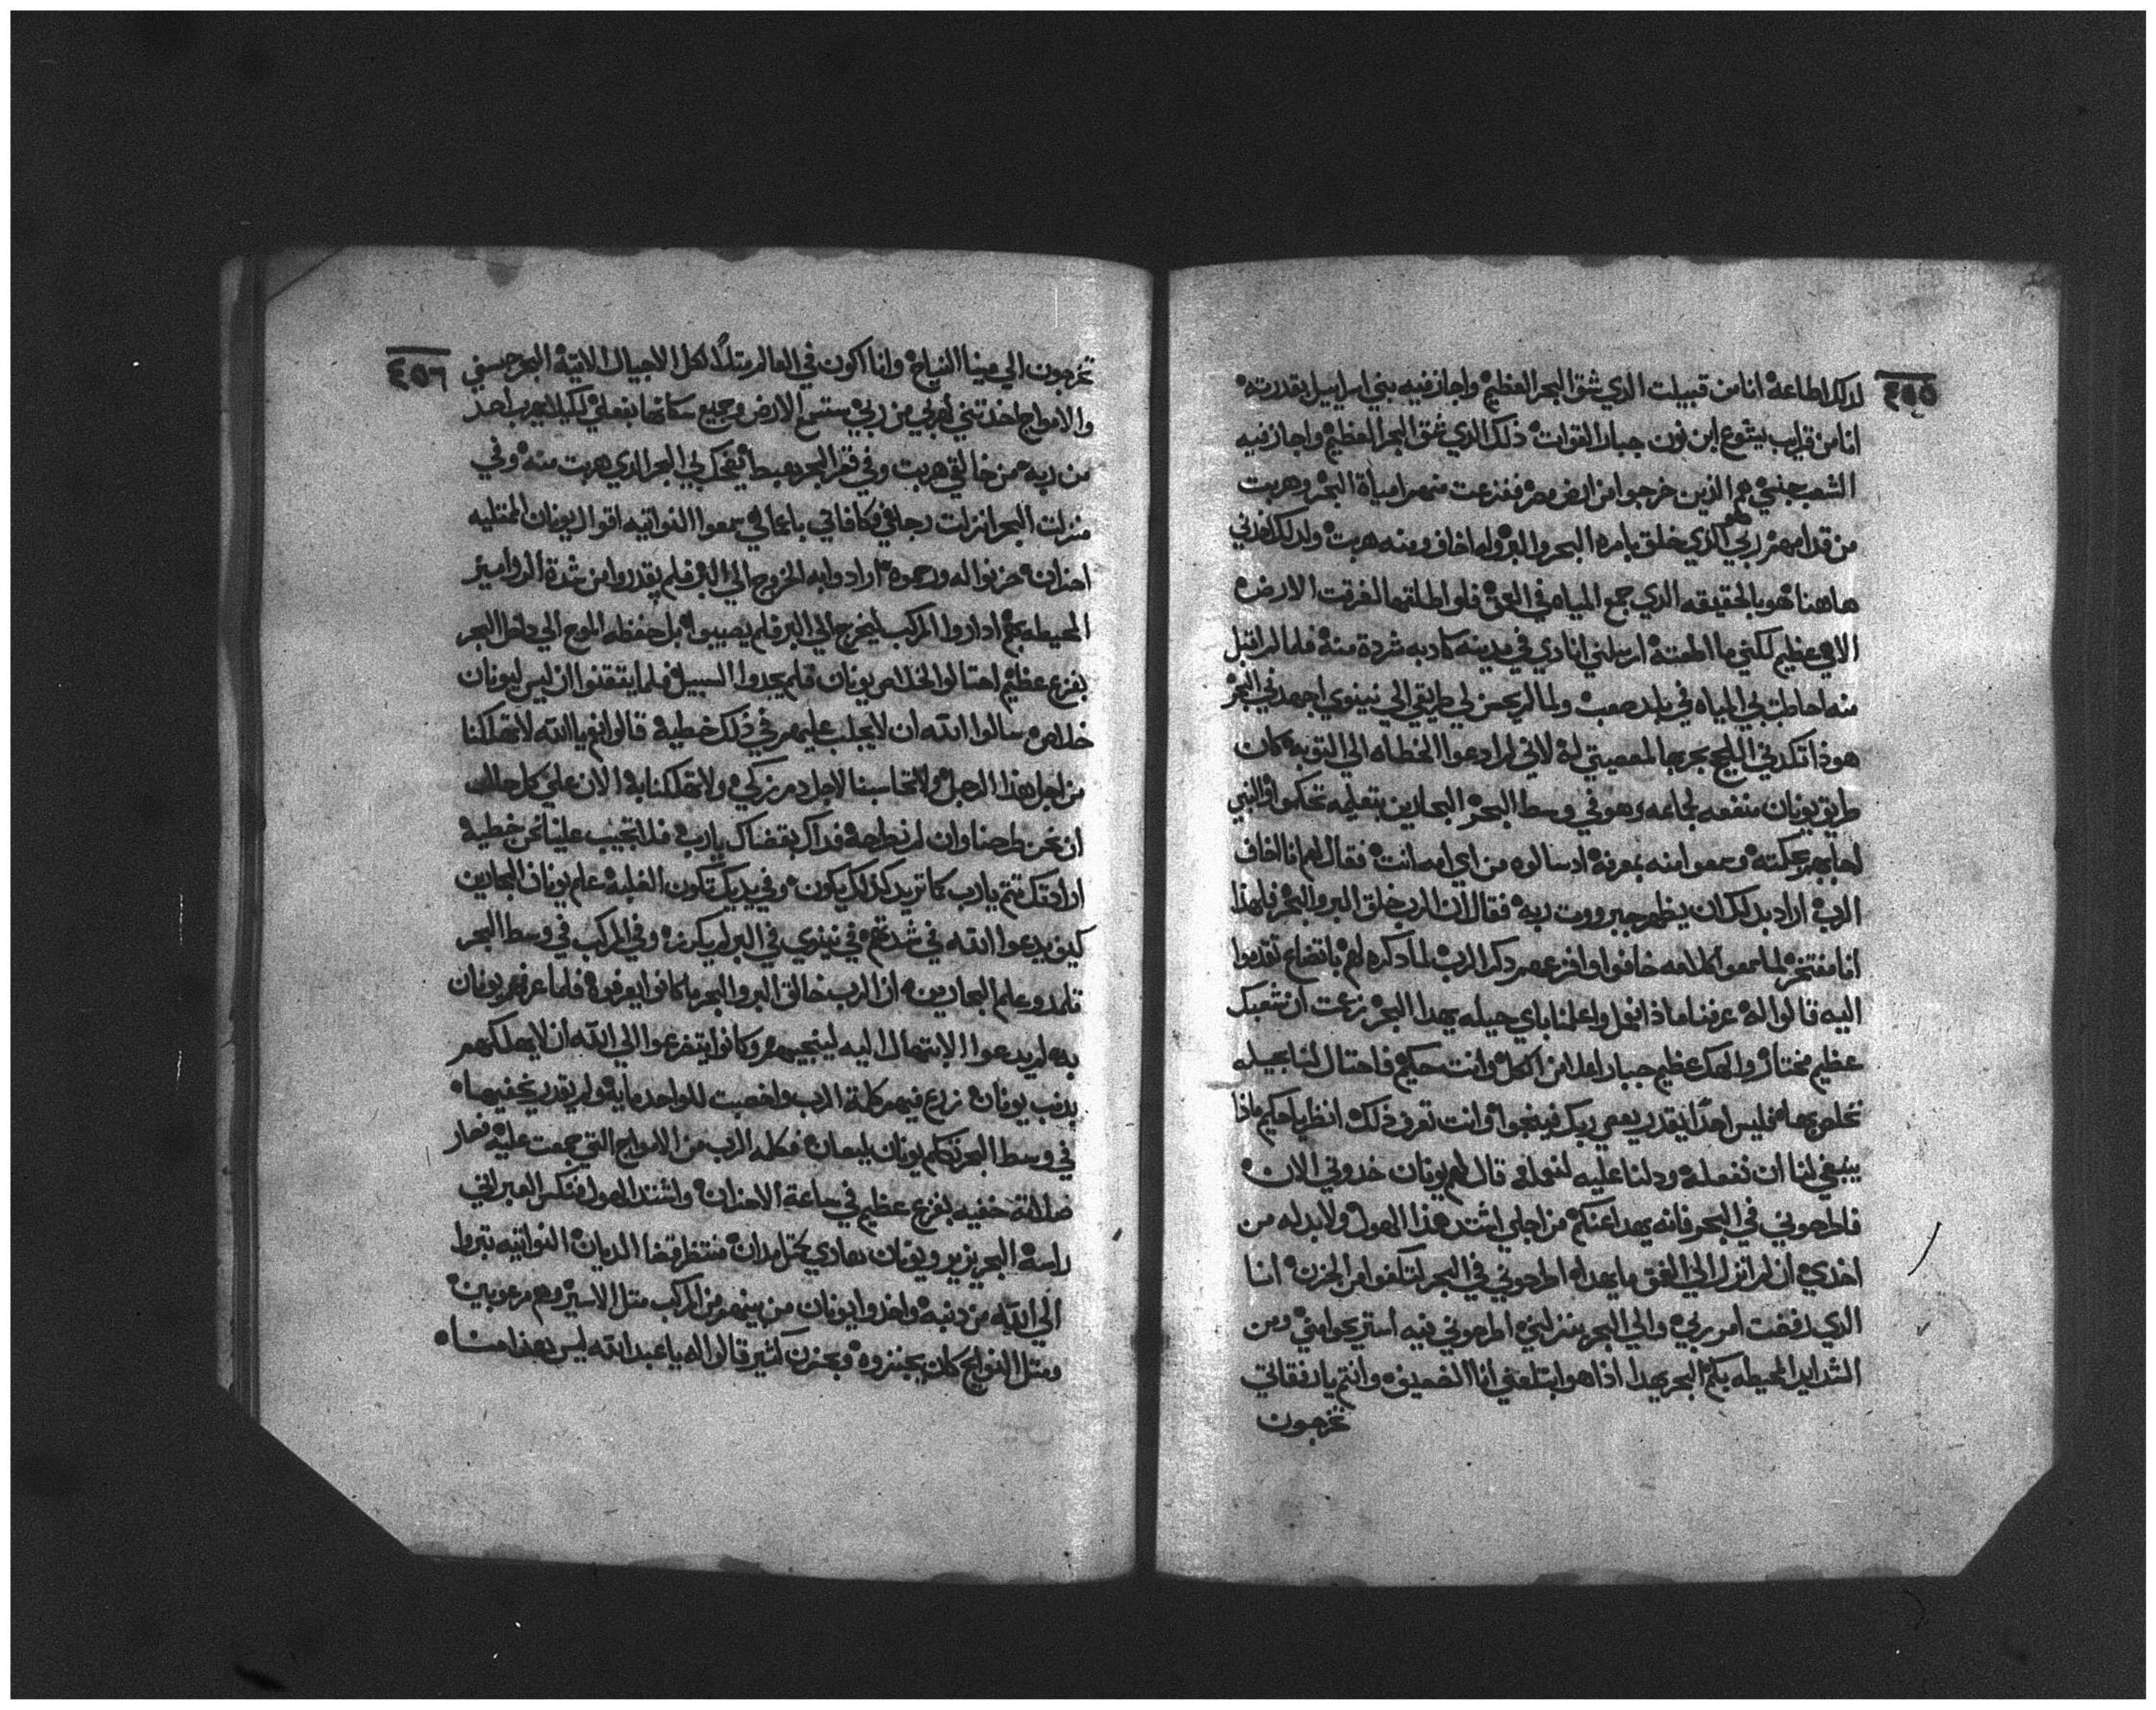 ٤٥٥
لذلك اطاعة انا من قبيلت الذي شق البحر العظيم واجاز فيه بني اسراييل بقدرته
انا من قرايب يشوع ابن نون جبار القوات ذلك الذي شق البحر العظيم واجاز فيه
الشعب هم الذين خرجوا من ارض مصر ففزعت منهم امياة البحر وهربت
من قدامهم ربي الذي خلق بامره البحر والبر وله اخاف ومنه هربت ولذلك
هاهنا هو بالحقيقه الذي جمع المياه في العمق فلو اطلقها لغرقت الارض
الاهي عظيم لكني ما اطعتة ارسلني انادي في مدينه كادبه شردة منه فلما لم اقبل
منه احاطت بي المياه في بلد صعب ولما لم يحسن لي طريقي الي نينوي في البحر
هوذا تكدني اللجج بحرجها لمعصيتي لة لاني لم ادعوا الخطاه الي التوبه كان
طريق يونان منفعه لجماعه وهو في وسط البحر البحارين بتعليمه
بحكمته وسمعوا منه بمعرفة اد سالوه من اي امه انت فقال لهم انا اخاف
الرب اراد بدلك ان يظهر جبرووت ربه فقال ان الرب خلق البر والبحر فلهذا
انا مفتخر لما سمعوا كلامه خافوا وافزعهم دكر الرب لما دكره لهم باتضاع تقدموا
اليه قالوا له عرفنا ماذا نعمل واعلمنا باي حيله يهدا البحر زعمت ان شعبك
عظيم مختار والهك عظيم جبار اعلا من الكل وانت حكيم فاحتال لنا بحيله
نخلص بها فليس احدًا يقدر يعصي ربك فينجوا وانت تعرف ذلك انظر يا حكيم ماذا
ينبغي لنا ان نفعله ودلنا عليه لنعمله قال لهم يونان خدوني الان
فاطرحوني في البحر فانه يهدا عنكم من اجلي اشتد هذا الهول ولا بد له من
اخدي ان لم انزل الي العمق ما يهدا اطرحوني في البحر لتكفوا من الحزن انا
الذي رفضت امر ربي والي البحر ينزلني اطرحوني فيه استريحوا مني ومن
الشدايد المحيطه بكم البحر يهدا اذا هو ابتلعني انا الضعيف وانتم يا رفقاتي
تخرجون
٤٥٦
تخرجون الي مينا النياح وانا اكون في العالم مثلًا لكل الاجيال الاتية البحر حبسني
والامواج اخدتني لهربي من ربي ستسمع الارض وجميع سكانها بفعلي لكيلا يهرب احد
من ربه من خالقي هربت وفي قعر البحر البحر الذي هربت منه وفي
منزلت البحر انزلت رجلي باعمالي سمعوا النواتيه اقوال يونان الممتليه
احزان حزنوا له ورحموه ارادوا به الخروج الي البر فلم يقدروا من شدة الدواميز
المحيطه بهم اداروا المركب ليخرج الي البر فلم يصيبوا بل حفظه الموج الي داخل البحر
بفزع عظيم احتالوا لخلاص يونان فلم يجدوا السبيل فلما ايتقنوا ان ليس ليونان
خلاص سالوا الله ان لا يجلب عليهم في ذلك خطية قالوا نعم يا الله لا تهلكنا
من اجل هذا الرجل ولا تحاسبنا لاجل دم زكي ولا تهلكنا به الان علي كل حال
ان نحن طرحنا وان لم نطرحه فداك بقضاك يا رب فلا تحسب علينا نحن خطية
ارادتك تتم يا رب كما تريد كذلك يكون وفي يديك تكون الغلبه علم يونان البحارين
كيف يدعوا الله في شدتهم في نينوي في البر لم يكرز وفي المركب في وسط البحر
تلمد وعلم البحارين ان الرب خالق البر والبحر ما كانوا يعرفوه فلما عرفهم يونان
به لم يدعوا الابتهال اليه لينجيهم وكانوا يتضرعوا الي الله ان لا يهلكهم
بدنب يونان زرع فيهم كلمة الرب واخصبت للواحد ماية ولم يقدر يخفيها
في وسط البحر تكلم يونان بلسان فكلمه الرب من الامواج التي جمعت عليه فصار
صلاتة خفيه بفزع عظيم في ساعة الاحزان واشتد الهول فنكس العبراني
راسة البحر يزير ويونان منتظر قضا الديان النواتيه تبروا
الي الله من دنبه واخدوا يونان من بينهم من المركب متل الاسير وهم مرعوبين
ومتل النوايح كان يجنزوه وبحزن كثير قالوا له يا عبد الله ليس هذا منا